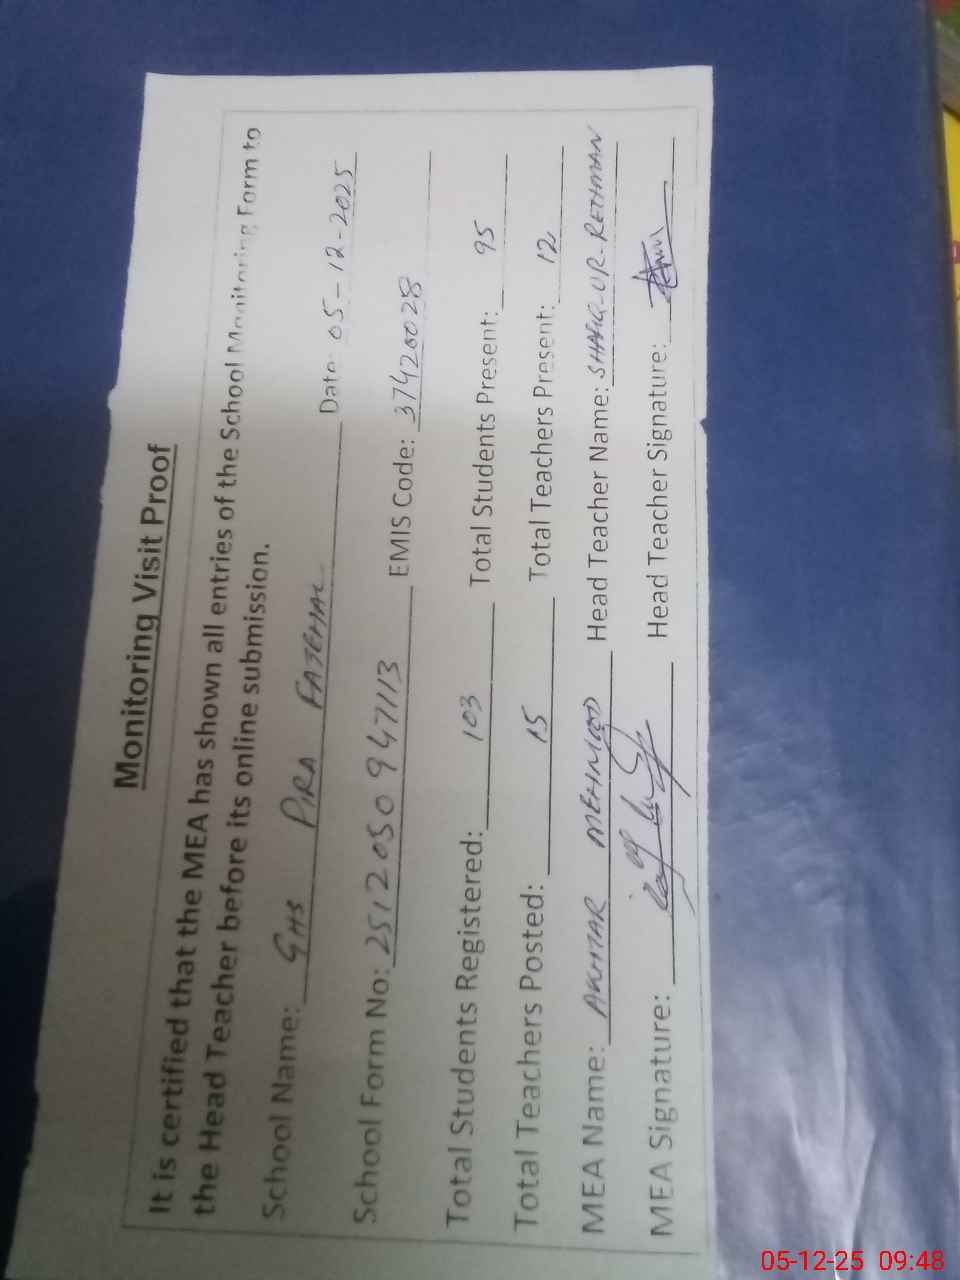 Monitoring Visit Proof
It is certified that the MEA has shown all entries of the School Monitoring Form to
the Head Teacher before its online submission.
School Name: GHS PIRA FATEHAL Date: 05-12-2025
School Form No: 2512050947113 EMIS Code: 37420028
Total Students Registered: 103 Total Students Present: 95
Total Teachers Posted: 15 Total Teachers Present: 12
MEA Name: AKHTAR MEHMOOD Head Teacher Name: SHAFIQ-UR-REHMAN
MEA Signature: Head Teacher Signature:
05-12-25 09:48